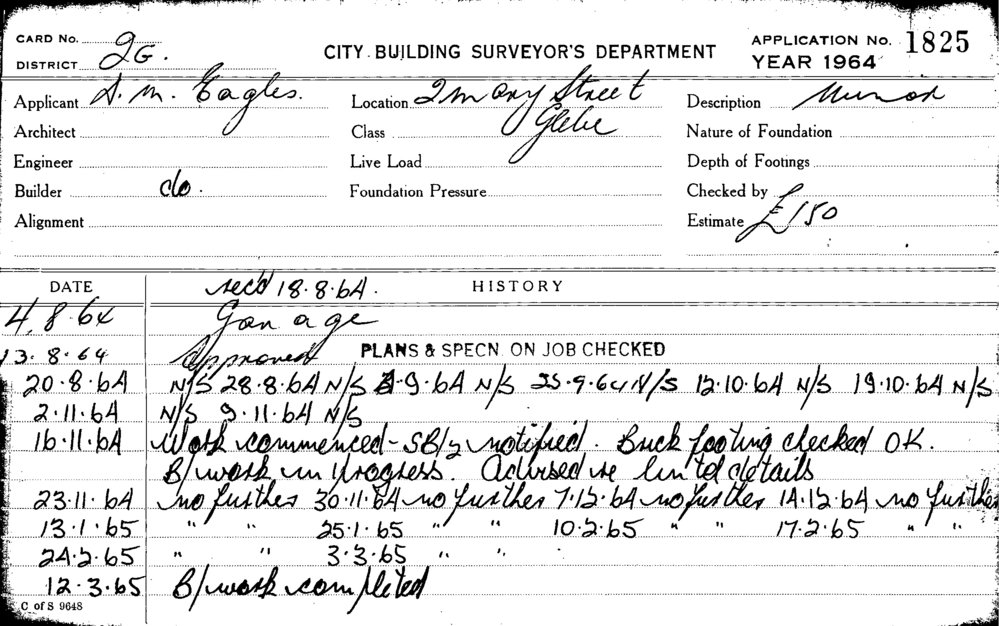 CARD No.
DISTRICT 2G.
CITY BUILDING SURVEYOR'S DEPARTMENT
APPLICATION No. 1825
YEAR 1964
Applicant S. M. Eagles.
Location 2 Mary Street
Glebe
Description Minor
Architect
Class
Nature of Foundation
Engineer
Live Load
Depth of Footings
Builder do.
Foundation Pressure
Checked by
Alignment
Estimate £150
DATE
rec'd 18.8.64.
HISTORY
4.8.64 Garage
13.8.64 Approved PLANS & SPECN. ON JOB CHECKED
20.8.64 N/S 28.8.64 N/S 9.64 N/S 25.9.64 N/S 12.10.64 N/S 19.10.64 N/S
2.11.64 N/S 9.11.64 N/S
16.11.64 Work commenced - SB/2 notified. Brick footing checked OK.
B/work in progress. Advised re lintel details
23.11.64 no further 30.11.64 no further 7.12.64 no further 14.12.64 no further
13.1.65 " " 25.1.65 " " 10.2.65 " " 17.2.65 " "
24.2.65 " " 3.3.65 " "
12.3.65 B/work completed
C of S 9648